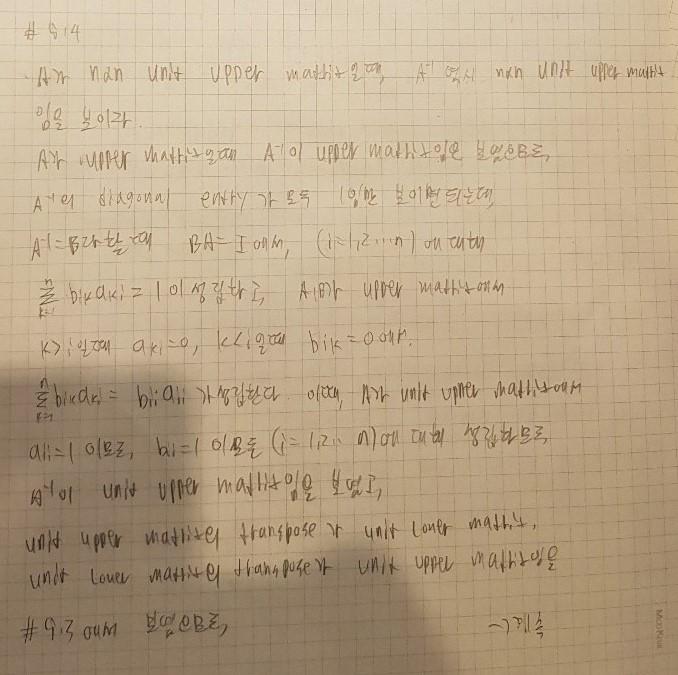 # 5.4
A가 nxn unit upper matrix일때, A⁻¹ 역시 nxn unit upper matrix
임을 보이라.
A가 upper matrix일때 A⁻¹이 upper matrix임은 보였으므로,
A⁻¹의 diagonal entry가 모두 1임만 보이면 되는데,
A⁻¹=B라 할때 BA=I에서, (i=1,2...n)에 대해
n Σ k=1 bikaki = 1이 성립하고, A,B가 upper matrix에서
k>i일때 aki=0, k<i일때 bik=0에서.
n Σ k=1 bikaki = biiaii가 성립한다. 이때, A가 unit upper matrix에서
aii=1이므로, bii=1이 모든 (i=1,2.. n)에 대해 성립하므로,
A⁻¹이 unit upper matrix임을 보였고,
unit upper matrix의 transpose가 unit lower matrix,
unit lower matrix의 transpose가 unit upper matrix임을
# 5.3에서 보였으므로,
Moo Kook